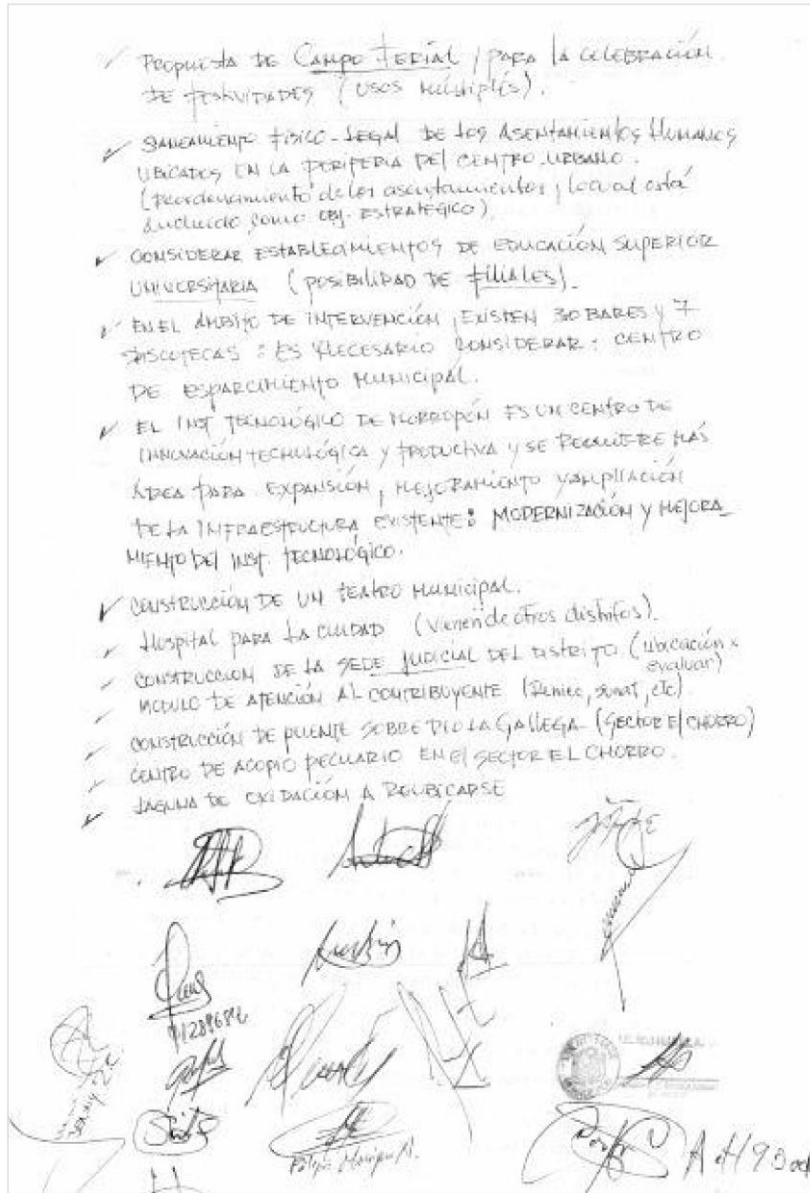 ✓ PROPUESTA DE CAMPO FERIAL, PARA LA CELEBRACIÓN
DE FESTIVIDADES (USOS MÚLTIPLES).
✓ SANEAMIENTO FÍSICO-LEGAL DE LOS ASENTAMIENTOS HUMANOS
UBICADOS EN LA PERIFERIA DEL CENTRO URBANO.
(Reordenamiento de los asentamientos, lo cual está
incluido como OBJ. ESTRATÉGICO)
✓ CONSIDERAR ESTABLECIMIENTOS DE EDUCACIÓN SUPERIOR
UNIVERSITARIA (POSIBILIDAD DE FILIALES).
✓ EN EL ÁMBITO DE INTERVENCIÓN, EXISTEN 30 BARES Y 7
DISCOTECAS: ES NECESARIO CONSIDERAR: CENTRO
DE ESPARCIMIENTO MUNICIPAL.
✓ EL INST TECNOLÓGICO DE MORROPÓN ES UN CENTRO DE
INNOVACIÓN TECNOLÓGICA Y PRODUCTIVA Y SE REQUIERE MÁS
ÁREA PARA EXPANSIÓN, MEJORAMIENTO Y AMPLIACIÓN
DE LA INFRAESTRUCTURA EXISTENTE: MODERNIZACIÓN Y MEJORA_
MIENTO DEL INST. TECNOLÓGICO.
✓ CONSTRUCCIÓN DE UN TEATRO MUNICIPAL.
✓ HOSPITAL PARA LA CIUDAD (Vienen de otros distritos).
✓ CONSTRUCCION DE LA SEDE JUDICIAL DEL DISTRITO (ubicación x
evaluar)
✓ MODULO DE ATENCIÓN AL CONTRIBUYENTE (Reniec, sunat, etc)
✓ CONSTRUCCIÓN DE PUENTE SOBRE RIO LA GALLEGA (SECTOR El CHORRO)
✓ CENTRO DE ACOPIO PECUARIO EN El SECTOR EL CHORRO.
✓ LAGUNA DE OXIDACIÓN A REUBICARSE